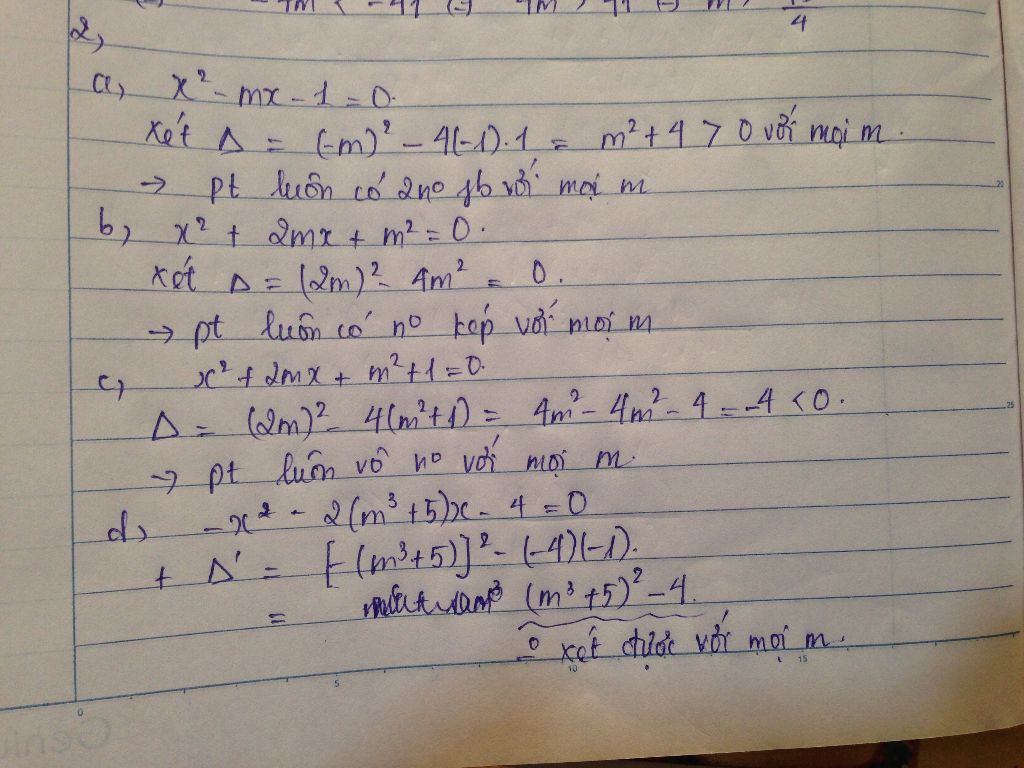 2,
a, x² - mx - 1 = 0.
Xét Δ = (-m)² - 4(-1).1 = m² + 4 > 0 với mọi m.
→ pt luôn có 2no pb với mọi m
b, x² + 2mx + m² = 0.
xét Δ = (2m)² - 4m² = 0.
→ pt luôn có no kép với mọi m
c, x² + 2mx + m² + 1 = 0.
Δ = (2m)² - 4(m²+1) = 4m² - 4m² - 4 = -4 < 0.
→ pt luôn vô no với mọi m.
d, -x² - 2(m³+5)x - 4 = 0
+ Δ' = [-(m³+5)]² - (-4)(-1).
= (m³+5)² - 4.
xét được với mọi m.